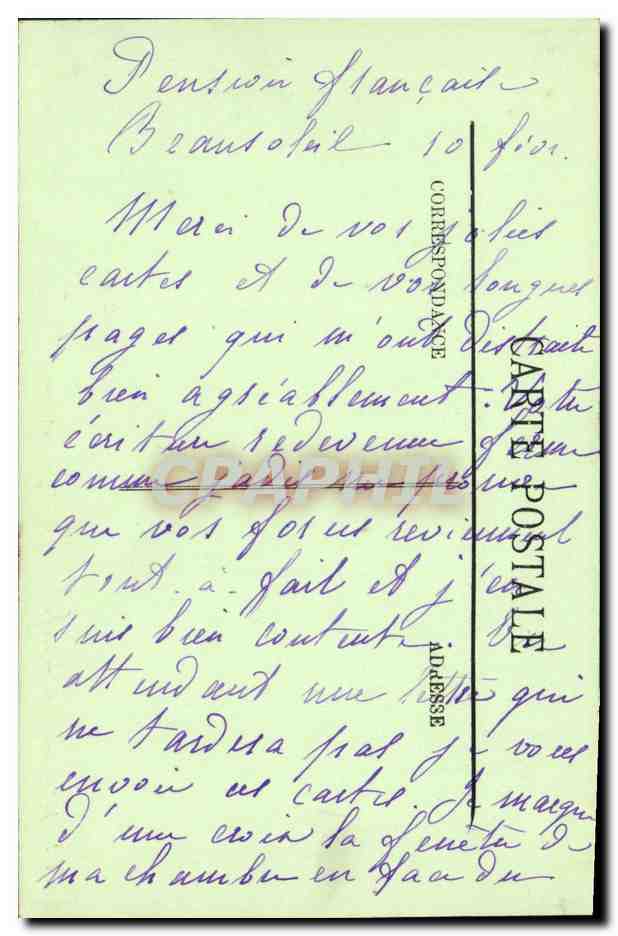 Pension française
Beausoleil 10 févr.
Merci de vos jolies
cartes et de vos longues
pages qui m'ont distraite
bien agréablement. Votre
écriture redevenue ferme
comme jadis prouve
que vos forces reviennent
tout-à-fait et j'en
suis bien contente. En
attendant une lettre qui
ne tardera pas je vous
envoie ces cartes. Je marque
d'une croix la fenêtre de
ma chambre en face du
CORRESPONDANCE
ADRESSE
CARTE POSTALE
CPAPHIL